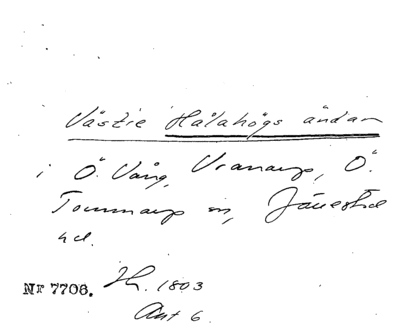 Västie Hålahögs ändan
i Ö. Vång, Vranarp, Ö.
Tommarp sn, Järrestad
hd.
NF 7708. Jh. 1803
Akt 6